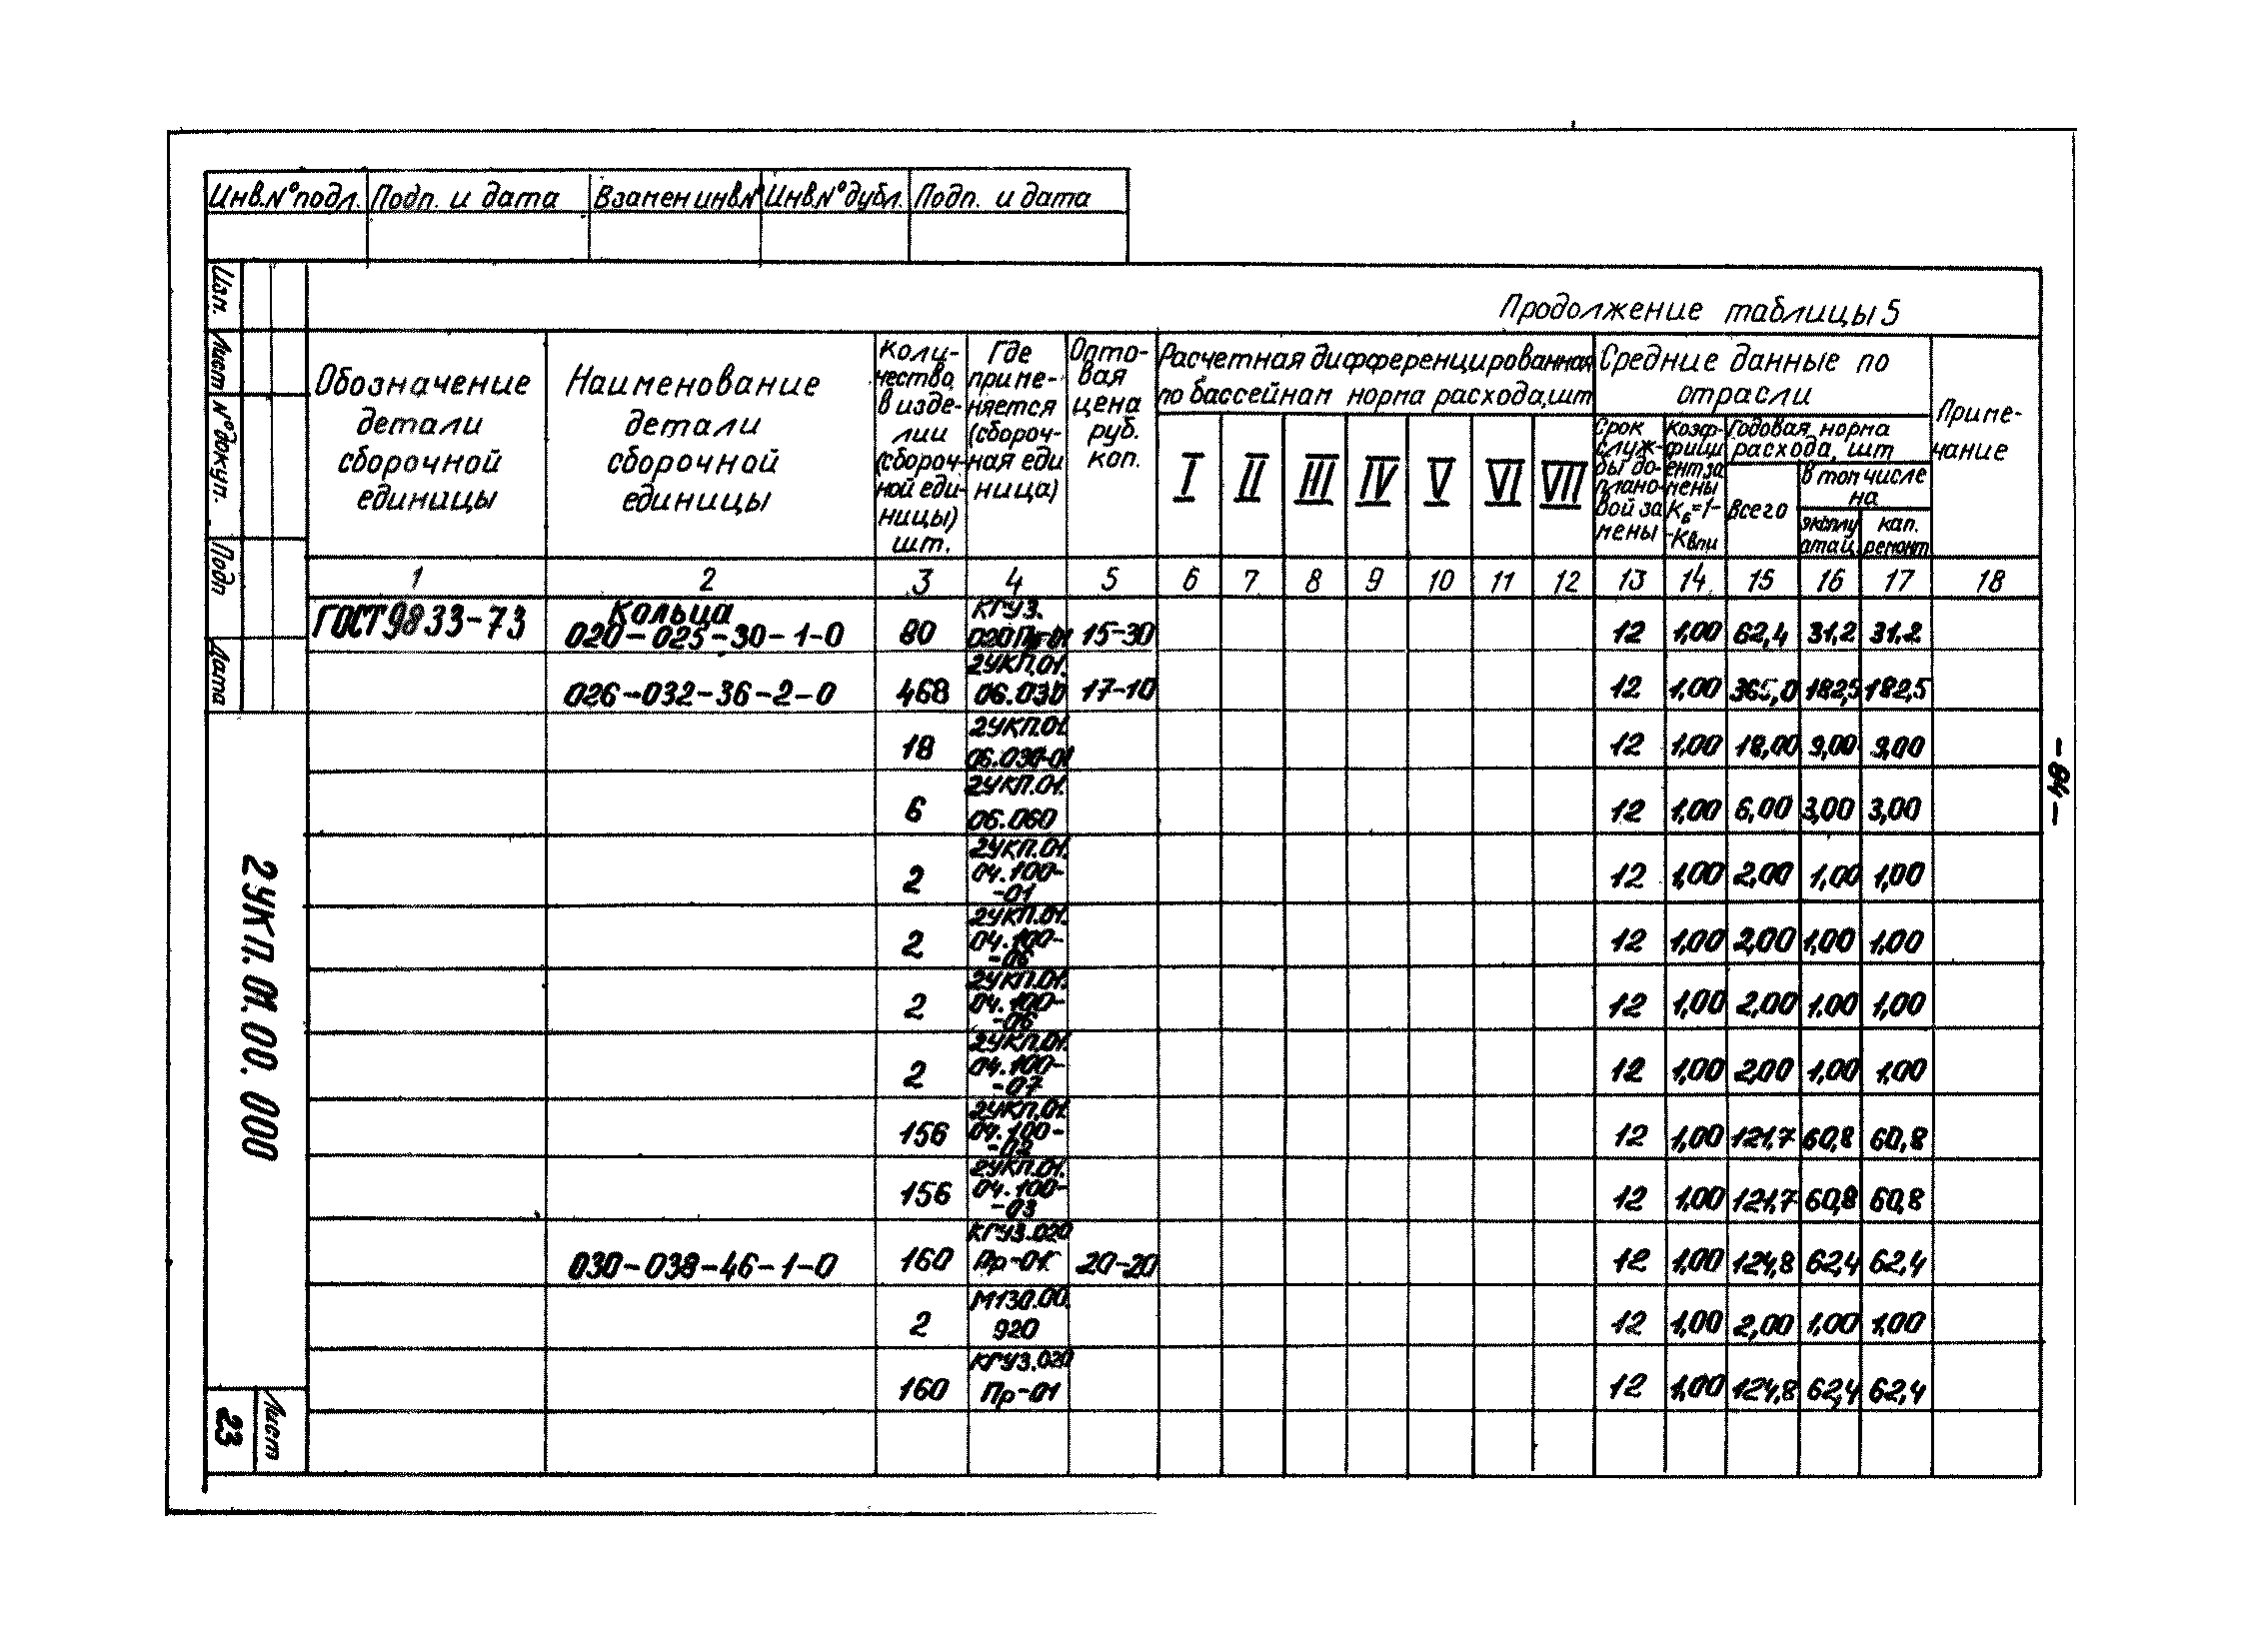 Инв.№подл. Подп. и дата Взамен инв№ Инв.№дубл. Подп. и дата
Изм. Лист №докум. Подп Дата
Продолжение таблицы 5
Обозначение детали сборочной единицы
Наименование детали сборочной единицы
Количество в изделии (сборочной единицы) шт.
Где применяется (сборочная единица)
Оптовая цена руб. коп.
Расчетная дифференцированная по бассейнам норма расхода, шт
I II III IV V VI VII
Средние данные по отрасли
Срок службы до плановой замены
Коэффициент замены Кб=1-Квпи
Годовая норма расхода, шт
Всего
в том числе на
эксплуатац. кап. ремонт
Примечание
1 2 3 4 5 6 7 8 9 10 11 12 13 14 15 16 17 18
ГОСТ 9833-73 Кольца 020-025-30-1-0 80 КГУЗ. 020Пр-01 15-30 12 1,00 62,4 31,2 31,2
026-032-36-2-0 468 2УКП.01. 06.030 17-10 12 1,00 365,0 182,5 182,5
18 2УКП.01. 06.030-01 12 1,00 18,00 9,00 9,00
6 2УКП.01. 06.060 12 1,00 6,00 3,00 3,00
2 2УКП.01. 04.100--01 12 1,00 2,00 1,00 1,00
2 2УКП.01. 04.100- 12 1,00 2,00 1,00 1,00
2 2УКП.01. 04.100--06 12 1,00 2,00 1,00 1,00
2 2УКП.01. 04.100--07 12 1,00 2,00 1,00 1,00
156 2УКП.01. 04.100--02 12 1,00 121,7 60,8 60,8
156 2УКП.01. 04.100--03 12 1,00 121,7 60,8 60,8
030-038-46-1-0 160 КГУЗ.020 Пр-01 20-20 12 1,00 124,8 62,4 62,4
2 М130.00. 920 12 1,00 2,00 1,00 1,00
160 КГУЗ.020 Пр-01 12 1,00 124,8 62,4 62,4
2УКП.01.00.000
Лист
23
-84-